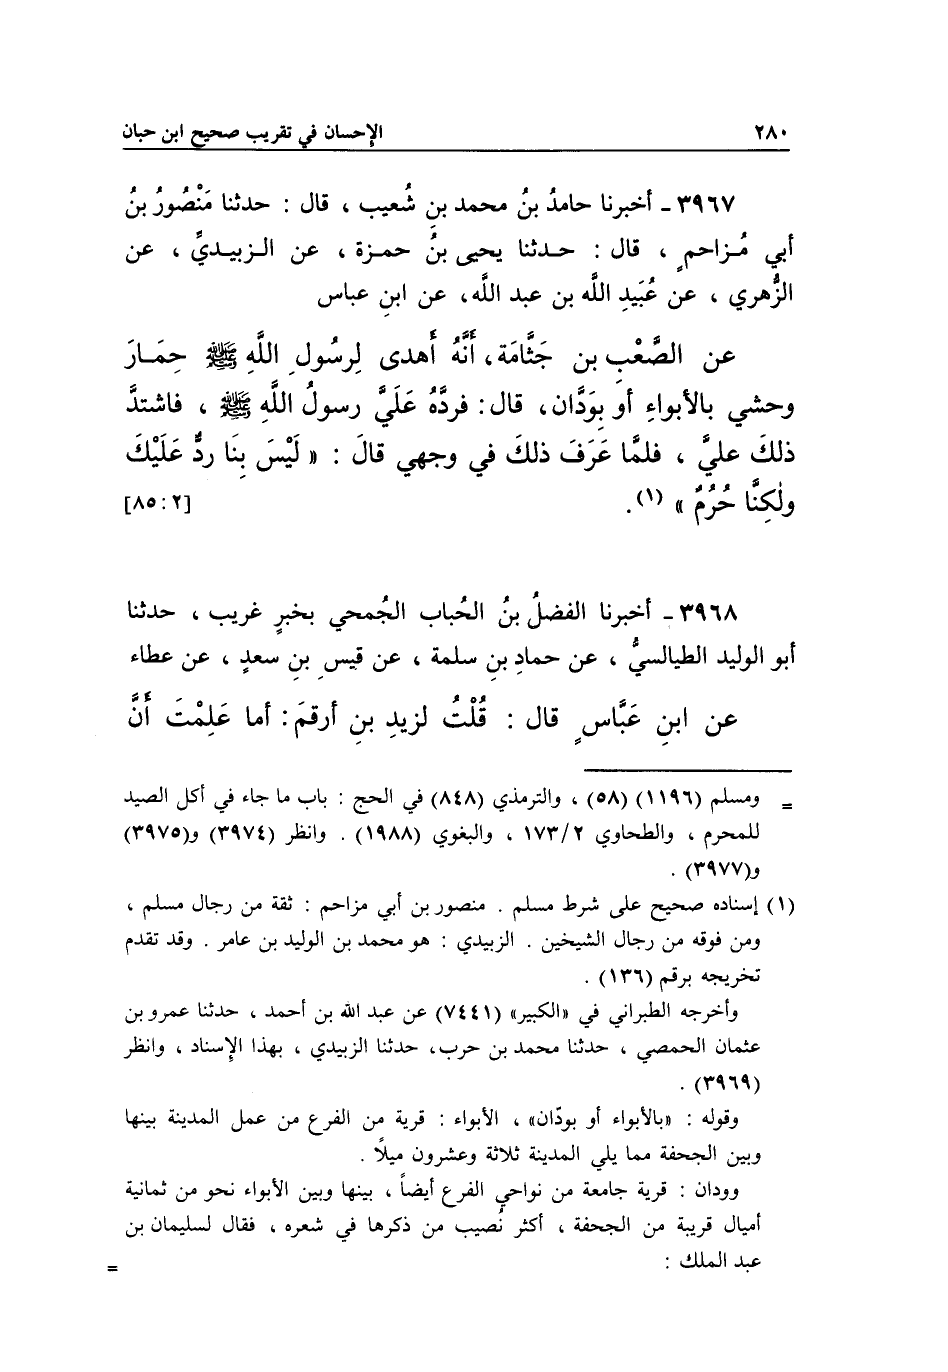 ٢٨٠ الإحسان في تقريب صحيح ابن حبان
٣٩٦٧ ـ أخبرنا حامدُ بنُ محمد بنِ شُعيب ، قال : حدثنا مَنْصُورُ بنُ
أبي مُزاحمٍ ، قال : حدثنا يحيى بنُ حمزة ، عن الزبيديِّ ، عن
الزُّهري ، عن عُبَيدِ اللَّه بن عبد اللَّه، عن ابنِ عباس
عن الصَّعْبِ بن جَثَّامَة، أَنَّهُ أهدى لِرسُولِ اللَّهِ ﷺ حِمَارَ
وحشي بالأبواءِ أو بوَدَّان، قال: فردَّهُ عَلَيَّ رسولُ اللَّهِ ﷺ ، فاشتدَّ
ذلكَ عليَّ ، فلمَّا عَرَفَ ذلكَ في وجهي قالَ : « لَيْسَ بِنَا ردٌّ عَلَيْكَ
ولٰكِنَّا حُرُمٌ » (١). [٨٥:٢]
٣٩٦٨ ـ أخبرنا الفضلُ بنُ الحُباب الجُمحي بخبرٍ غريب ، حدثنا
أبو الوليد الطيالسيُّ ، عن حمادِ بنِ سلمة ، عن قيسِ بنِ سعدٍ ، عن عطاء
عن ابنِ عَبَّاسٍ قال : قُلْتُ لزيدِ بنِ أرقمَ: أما عَلِمْتَ أَنَّ
= ومسلم (١١٩٦) (٥٨) ، والترمذي (٨٤٨) في الحج : باب ما جاء في أكل الصيد
للمحرم ، والطحاوي ١٧٣/٢ ، والبغوي (١٩٨٨) . وانظر (٣٩٧٤) و(٣٩٧٥)
و(٣٩٧٧) .
(١) إسناده صحيح على شرط مسلم . منصور بن أبي مزاحم : ثقة من رجال مسلم ،
ومن فوقه من رجال الشيخين . الزبيدي : هو محمد بن الوليد بن عامر . وقد تقدم
تخريجه برقم (١٣٦) .
وأخرجه الطبراني في «الكبير» (٧٤٤١) عن عبد الله بن أحمد ، حدثنا عمرو بن
عثمان الحمصي ، حدثنا محمد بن حرب، حدثنا الزبيدي ، بهذا الإسناد ، وانظر
(٣٩٦٩) .
وقوله : «بالأبواء أو بودّان» ، الأبواء : قرية من الفرع من عمل المدينة بينها
وبين الجحفة مما يلي المدينة ثلاثة وعشرون ميلاً .
وودان : قرية جامعة من نواحي الفرع أيضاً ، بينها وبين الأبواء نحو من ثمانية
أميال قريبة من الجحفة ، أكثر نُصيب من ذكرها في شعره ، فقال لسليمان بن
عبد الملك : =